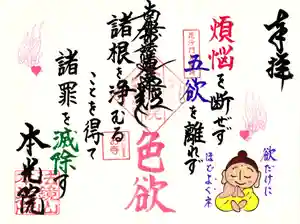 奉拝
煩悩を断ぜず
五欲を離れず
色欲
諸根を浄むる
ことを得て
諸罪を滅除す
本光院
欲だけに
ほどよくネ